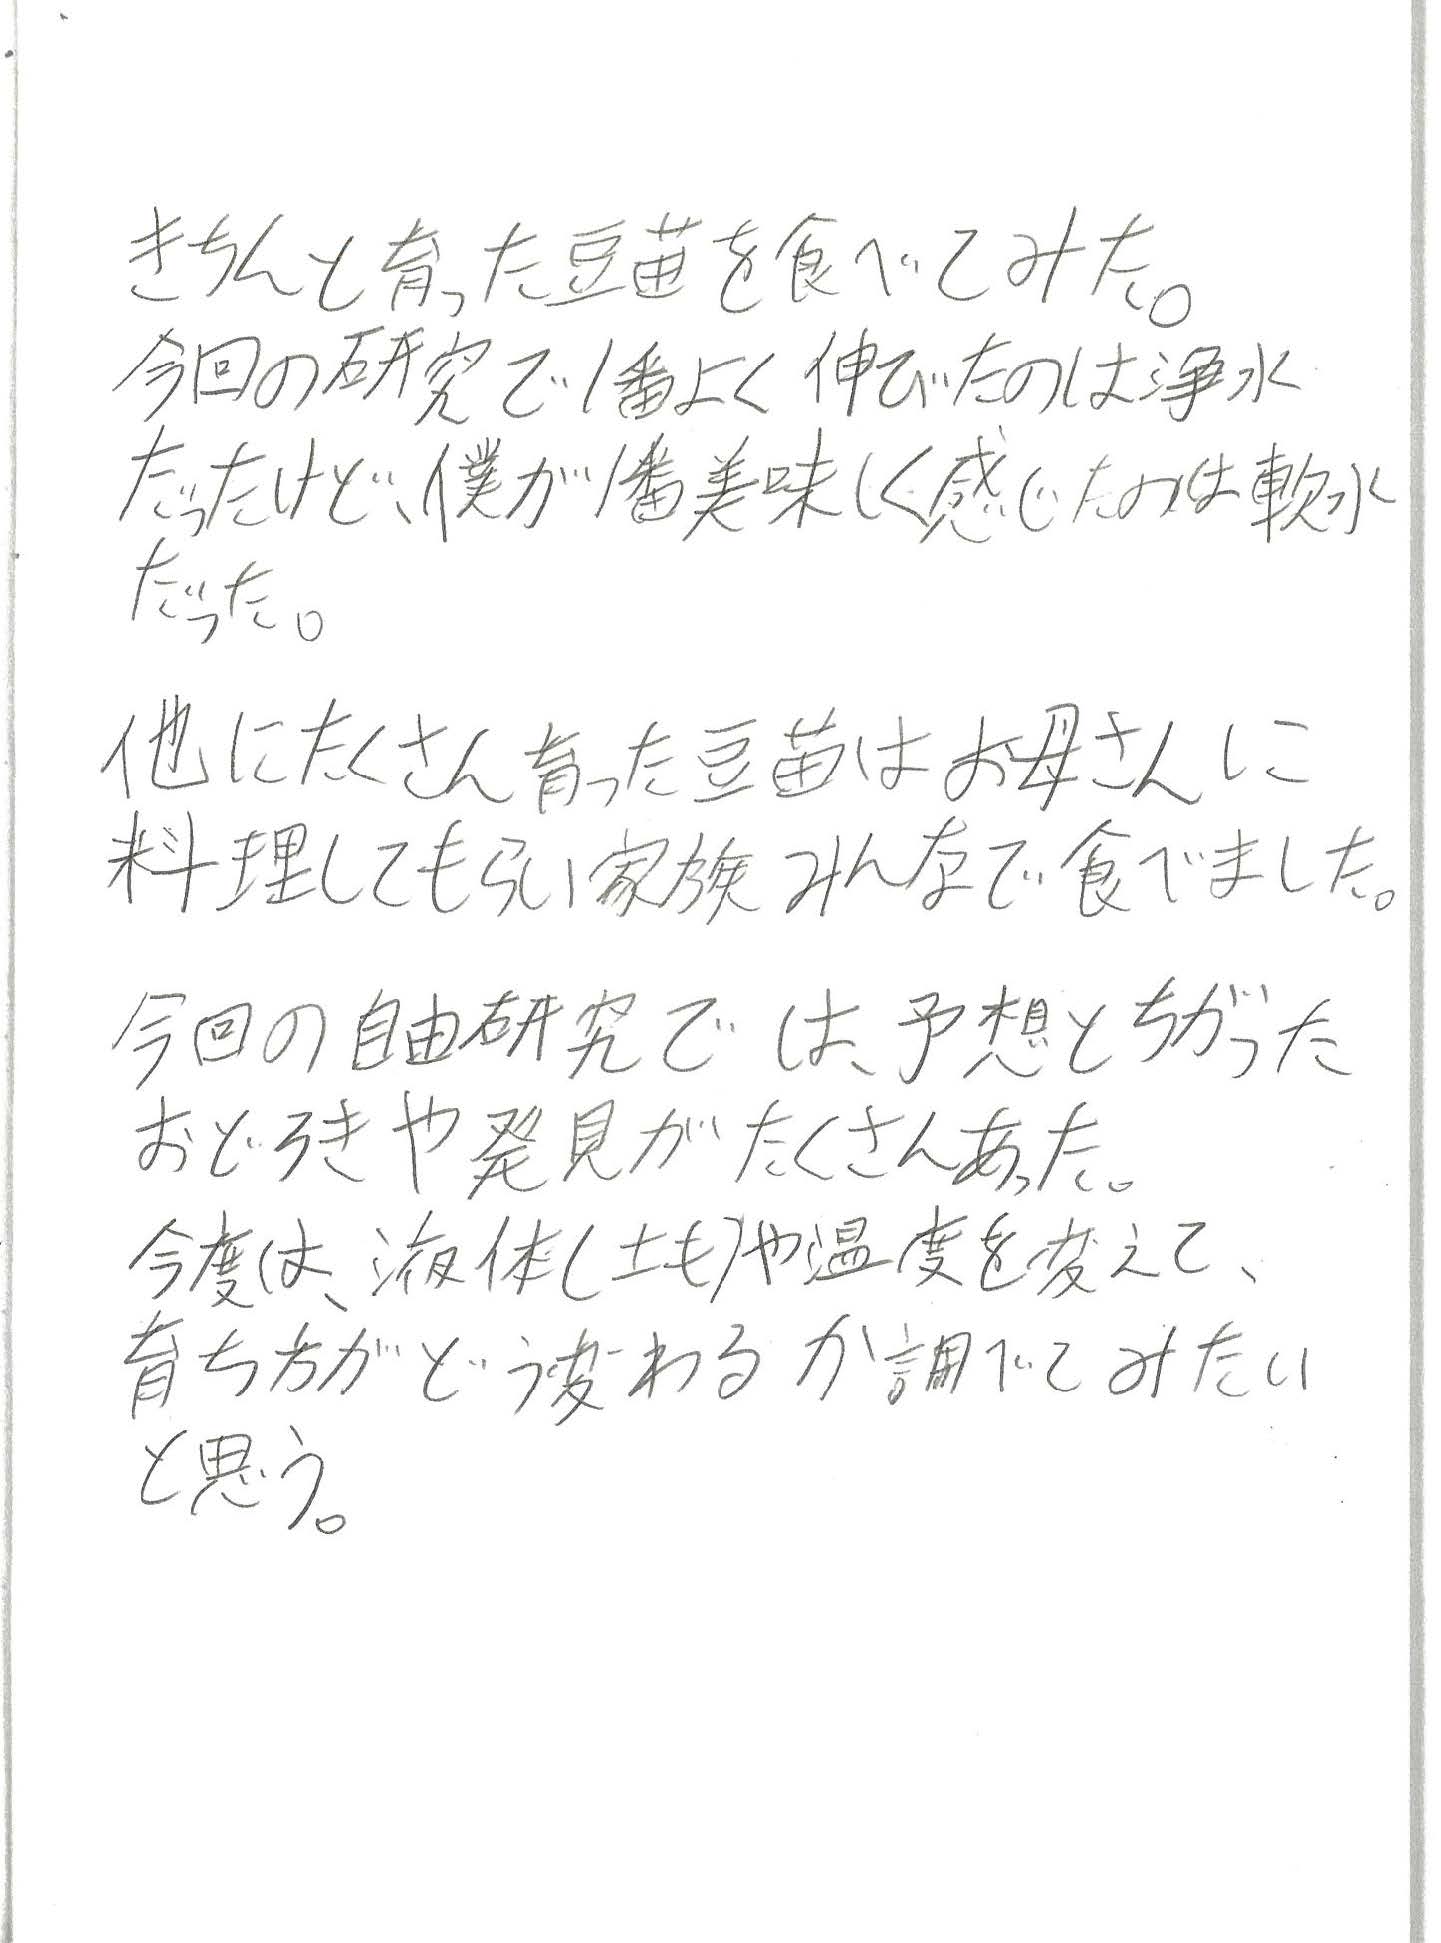 きちんと育った豆苗を食べてみた。
今回の研究で1番よく伸びたのは浄水
だったけど、僕が1番美味しく感じたのは軟水
だった。
他にたくさん育った豆苗はお母さんに
料理してもらい家族みんなで食べました。
今回の自由研究では、予想とちがった
おどろきや発見がたくさんあった。
今度は、液体(土も)や温度を変えて、
育ち方がどう変わるか調べてみたい
と思う。